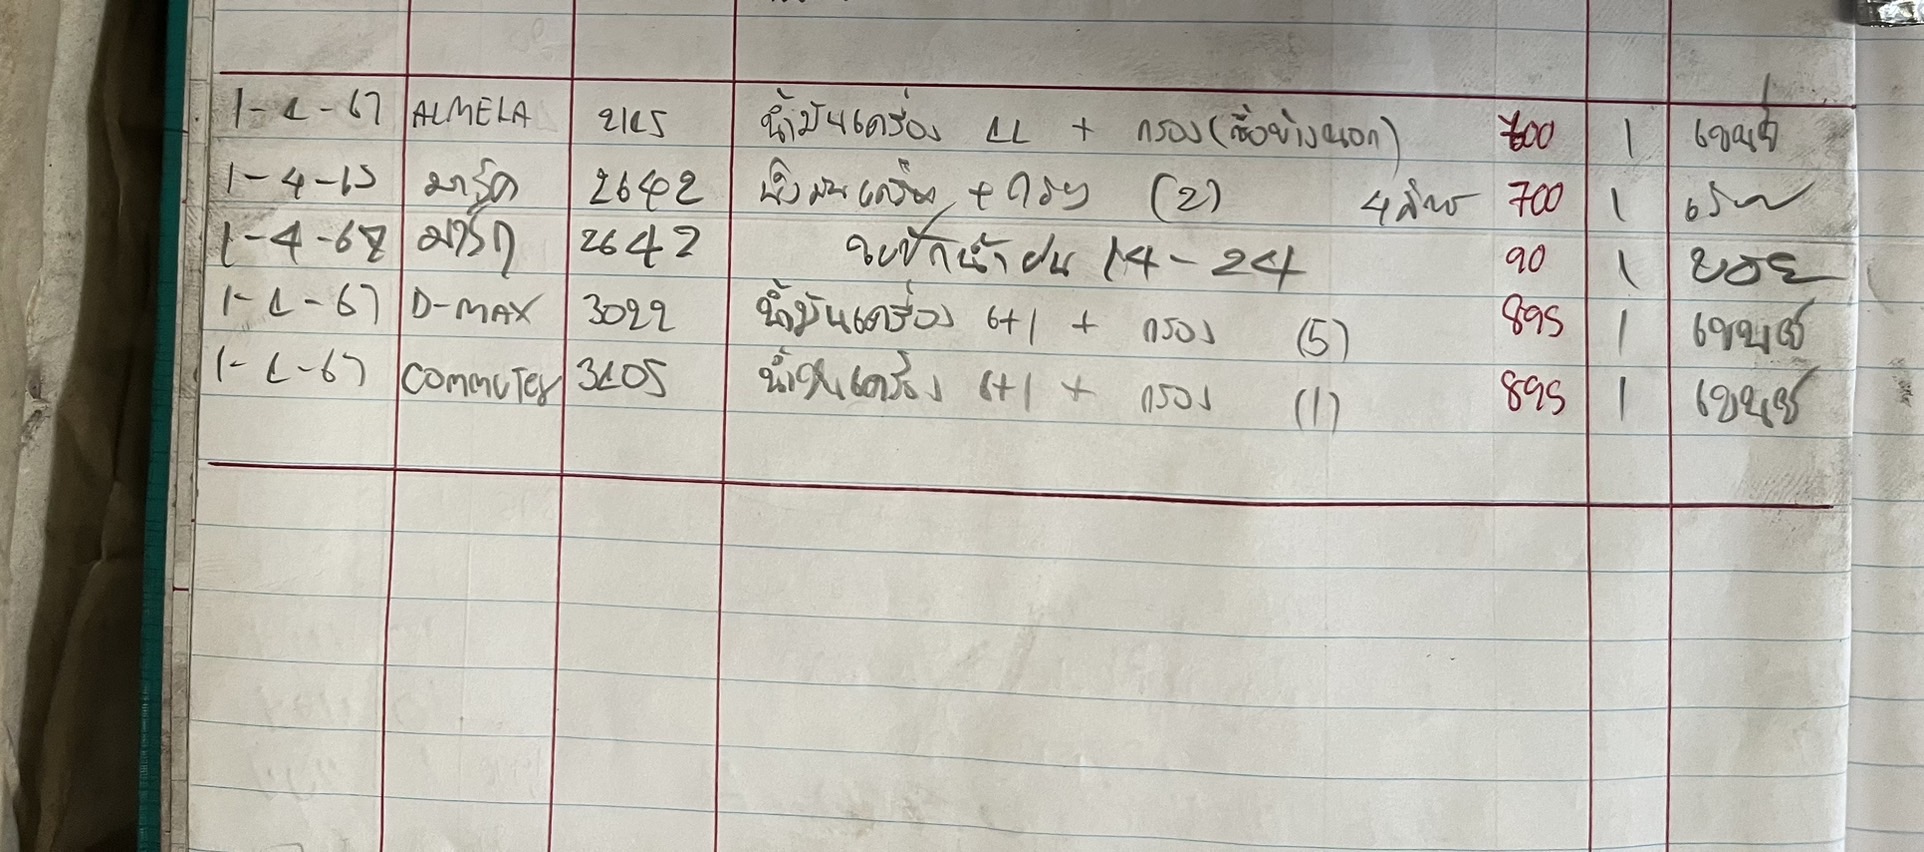 1-4-67 ALMELA 2145 น้ำมันเครื่อง 4L + กรอง (ซื้อข้างนอก) 700 1
1-4-67 มาร์ช 2642 น้ำมันเครื่อง + กรอง (2) 4 ลิตร 700 1
1-4-67 มาร์ช 2642 ใบปัดน้ำฝน 14-24 90 1
1-4-67 D-MAX 3022 น้ำมันเครื่อง 6+1 + กรอง (5) 895 1
1-4-67 COMMUTER 3405 น้ำมันเครื่อง 6+1 + กรอง (1) 895 1